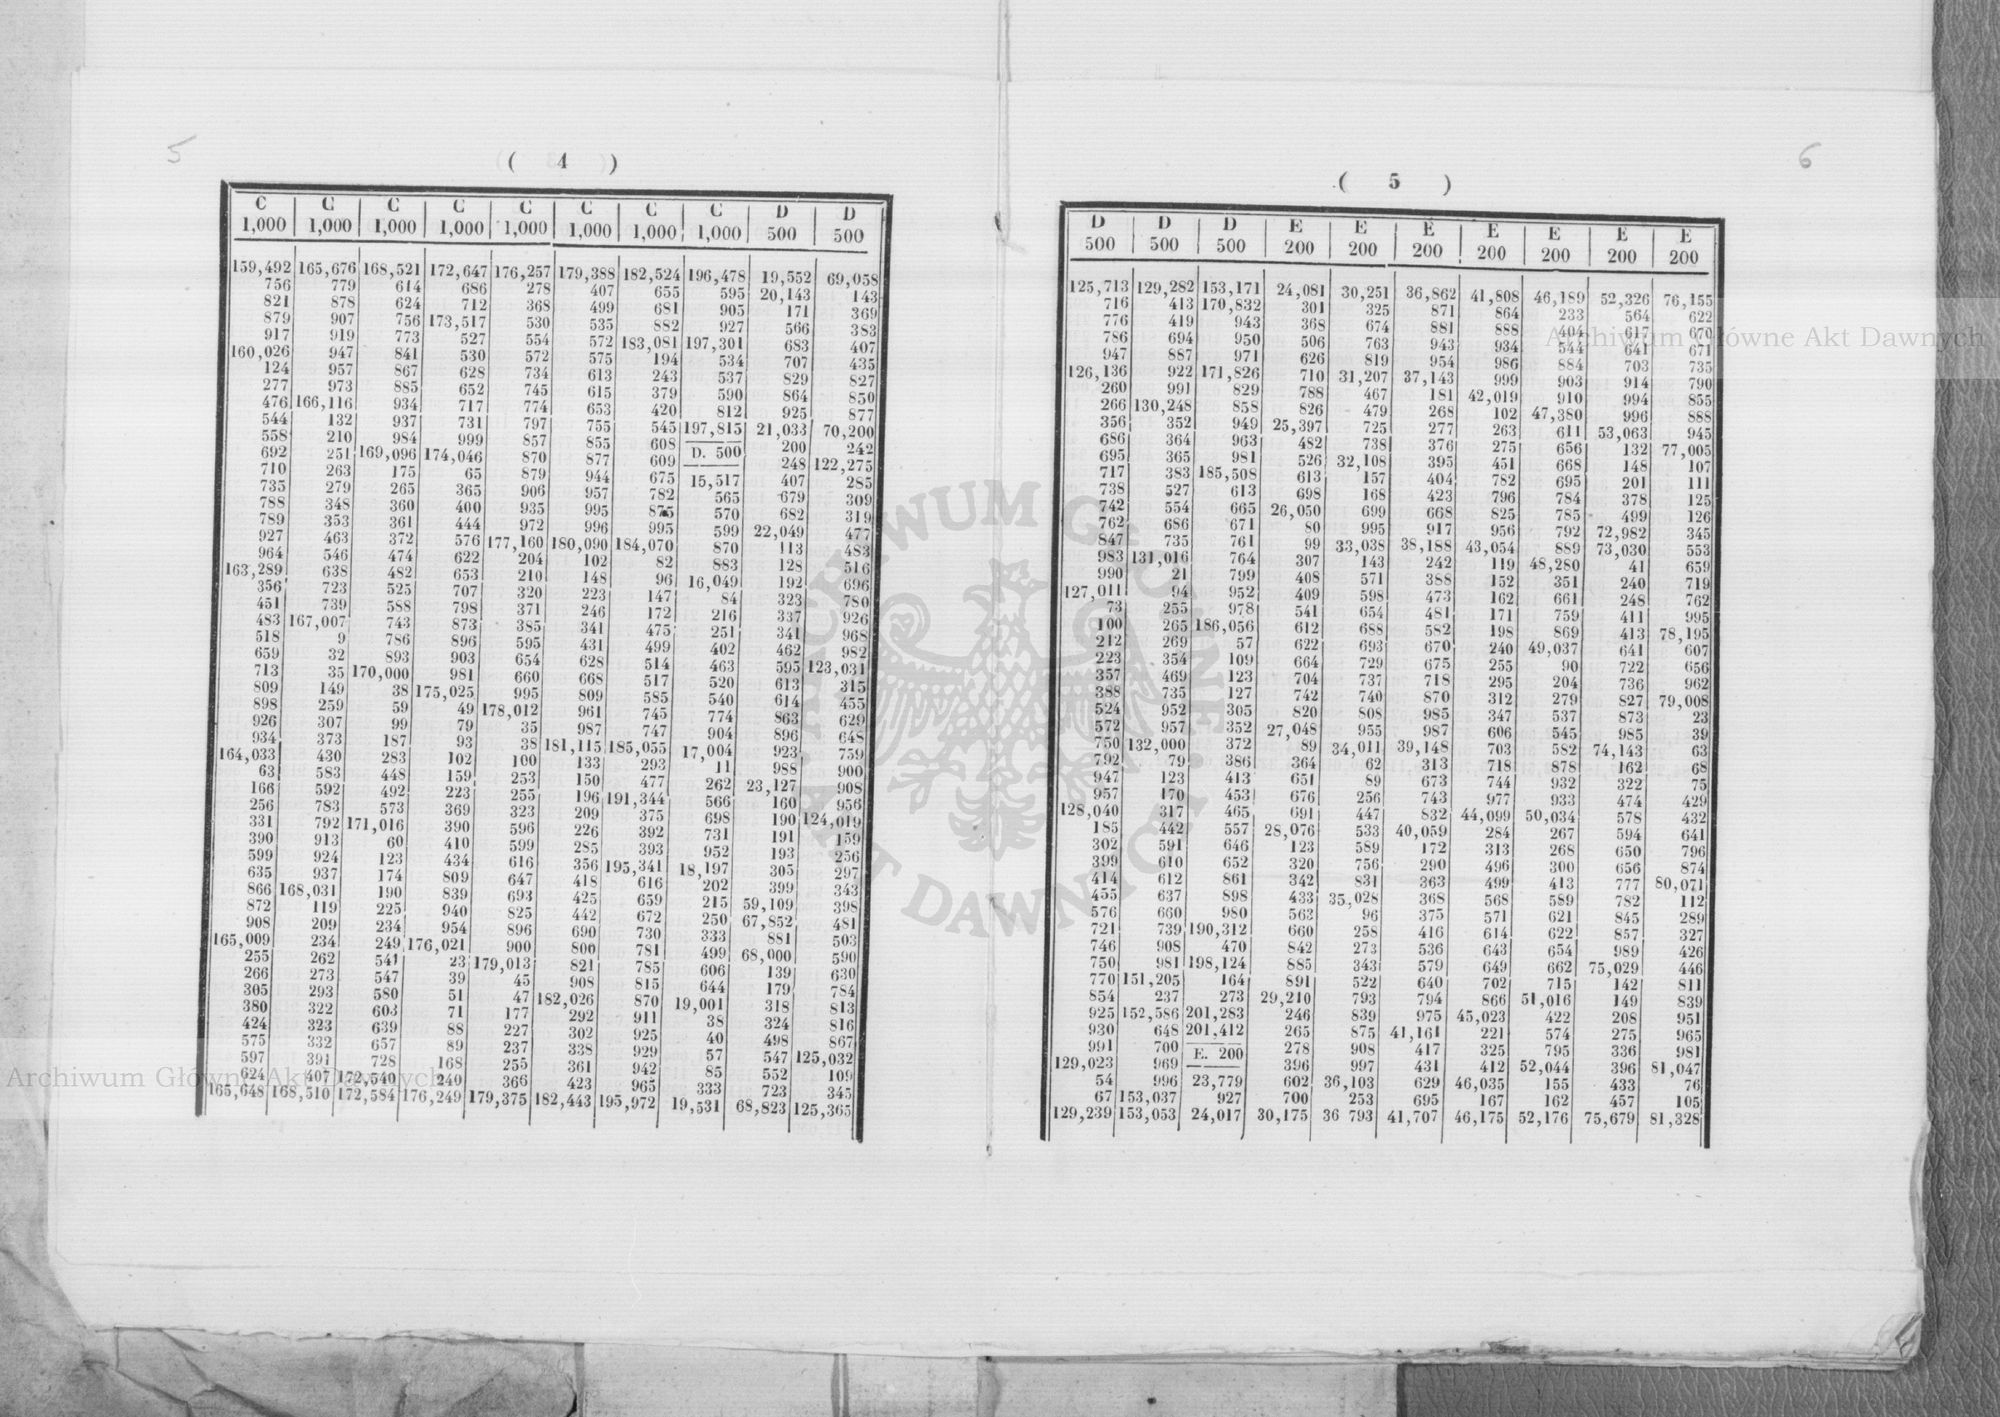 5
( 4 )
C
1,000
159,492
756
821
879
917
160,026
124
277
476
544
558
692
710
735
788
789
927
964
163,289
356
451
483
518
659
713
809
898
926
934
164,033
63
166
256
331
390
599
635
866
872
908
165,009
255
266
305
380
424
575
597
624
165,648
C
1,000
165,676
779
878
907
919
947
957
973
166,116
132
210
251
263
279
348
353
463
546
638
723
739
167,007
9
32
35
149
259
307
373
430
583
592
783
792
913
924
937
168,031
119
209
234
262
273
293
322
323
332
391
407
168,510
C
1,000
168,521
614
624
756
773
841
867
885
934
937
984
169,096
175
265
360
361
372
474
482
525
588
743
786
893
170,000
38
59
99
187
283
448
492
573
171,016
60
123
174
190
225
234
249
541
547
580
603
639
657
728
172,540
172,584
C
1,000
172,647
686
712
173,517
527
530
628
652
717
731
999
174,046
65
365
400
444
576
622
653
707
798
873
896
903
981
175,025
49
79
93
102
159
223
369
390
410
434
809
839
940
954
176,021
23
39
51
71
88
89
168
240
176,249
C
1,000
176,257
278
368
530
554
572
734
745
774
797
857
870
879
906
935
972
177,160
204
210
320
371
385
595
654
660
995
178,012
35
38
100
253
255
323
596
599
616
647
693
825
896
900
179,013
45
47
177
227
237
255
366
179,375
C
1,000
179,388
407
499
535
572
575
613
615
653
755
855
877
944
957
995
996
180,090
102
148
223
246
341
431
628
668
809
961
987
181,115
133
150
196
209
226
285
356
418
425
442
690
800
821
908
182,026
292
302
338
361
423
182,443
C
1,000
182,524
655
681
882
183,081
194
243
379
420
545
608
609
675
782
875
995
184,070
82
96
147
172
475
499
514
517
585
745
747
185,055
293
477
191,344
375
392
393
195,341
616
659
672
730
781
785
815
870
911
925
929
942
965
195,972
C
1,000
196,478
595
905
927
197,301
534
537
590
812
197,815
D. 500
15,517
565
570
599
870
883
16,049
84
216
251
402
463
520
540
774
904
17,004
11
262
566
698
731
952
18,197
202
215
250
333
499
606
644
19,001
38
40
57
85
333
19,531
D
500
19,552
20,143
171
566
683
707
829
864
925
21,033
200
248
407
679
682
22,049
113
128
192
323
337
341
462
595
613
614
863
896
923
988
23,127
160
190
191
193
305
399
59,109
67,852
881
68,000
139
179
318
324
498
547
552
723
68,823
D
500
69,058
143
369
383
407
435
827
850
877
70,200
242
122,275
285
309
319
477
483
516
696
780
926
968
982
123,031
315
455
629
648
759
900
908
956
124,019
159
256
297
343
398
481
503
590
630
784
813
816
867
125,032
109
345
125,365
6
( 5 )
D
500
125,713
716
776
786
947
126,136
260
266
356
686
695
717
738
742
762
847
983
990
127,011
73
100
212
223
357
388
524
572
750
792
947
957
128,040
185
302
399
414
455
576
721
746
750
770
854
925
930
991
129,023
54
67
129,239
D
500
129,282
413
419
694
887
922
991
130,248
352
364
365
383
527
554
686
735
131,016
21
94
255
265
269
354
469
735
952
957
132,000
79
123
170
317
442
591
610
612
637
660
739
908
981
151,205
237
152,586
648
700
969
996
153,037
153,053
D
500
153,171
170,832
943
950
971
171,826
829
858
949
963
981
185,508
613
665
671
761
764
799
952
978
186,056
57
109
123
127
305
352
372
386
413
453
465
557
646
652
861
898
980
190,312
470
198,124
164
273
201,283
201,412
E. 200
23,779
927
24,017
E
200
24,081
301
368
506
626
710
788
826
25,397
482
526
613
698
26,050
80
99
307
408
409
541
612
622
664
704
742
820
27,048
89
364
651
676
691
28,076
123
320
342
433
563
660
842
885
891
29,210
246
265
278
396
602
700
30,175
E
200
30,251
325
674
763
819
31,207
467
479
725
738
32,108
157
168
699
995
33,038
143
571
598
654
688
693
729
737
740
808
955
34,011
62
89
256
447
533
589
756
831
35,028
96
258
273
343
522
793
839
875
908
997
36,103
253
36 793
E
200
36,862
871
881
943
954
37,143
181
268
277
376
395
404
423
668
917
38,188
242
388
473
481
582
670
675
718
870
985
987
39,148
313
673
743
832
40,059
172
290
363
368
375
416
536
579
640
794
975
41,161
417
431
629
695
41,707
E
200
41,808
864
888
934
986
999
42,019
102
263
275
451
782
796
825
956
43,054
119
152
162
171
198
240
255
295
312
347
606
703
718
744
977
44,099
284
313
496
499
568
571
614
643
649
702
866
45,023
221
325
412
46,035
167
46,175
E
200
46,189
233
404
544
884
903
910
47,380
611
656
668
695
784
785
792
889
48,280
351
661
759
869
49,037
90
204
279
537
545
582
878
932
933
50,034
267
268
300
413
589
621
622
654
662
715
51,016
422
574
795
52,044
155
162
52,176
E
200
52,326
564
617
641
703
914
994
996
53,063
132
148
201
378
499
72,982
73,030
41
240
248
411
413
641
722
736
827
873
985
74,143
162
322
474
578
594
650
656
777
782
845
857
989
75,029
142
149
208
275
336
396
433
457
75,679
E
200
76,155
622
670
671
735
790
855
888
945
77,005
107
111
125
126
345
553
659
719
762
995
78,195
607
656
962
79,008
23
39
63
68
75
429
432
641
796
874
80,071
112
289
327
426
446
811
839
951
965
981
81,047
76
105
81,328
Archiwum Główne Akt Dawnych
Archiwum Główne Akt Dawnych
ARCHIWUM GŁÓWNE AKT DAWNYCH